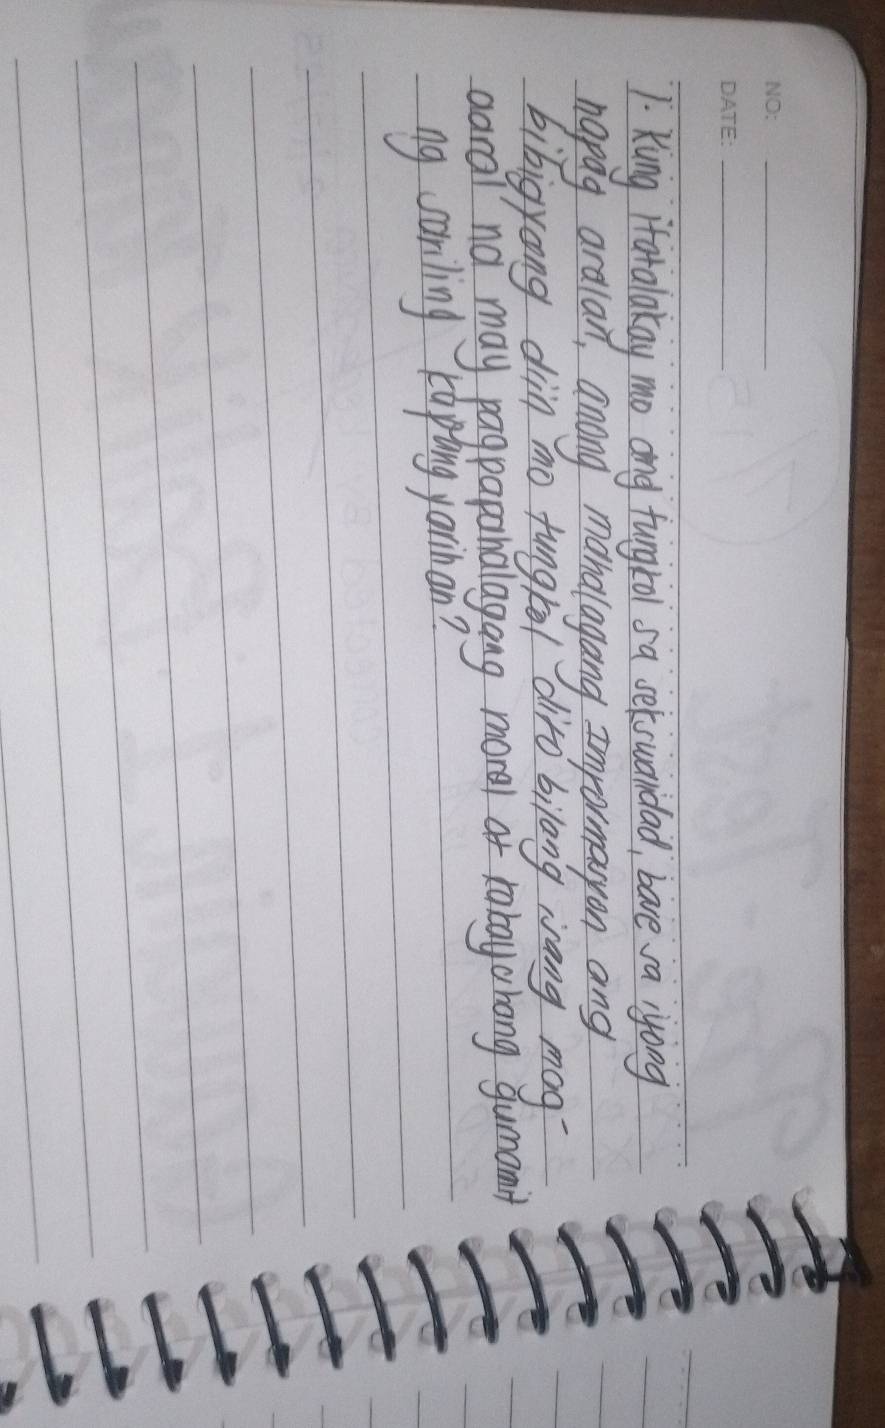 NO:
DATE:
1. Kung itatalakay mo ang tungkol sa sekswalidad, base sa iyong
napag aralan, anong mahalagang impormasyon ang
bibigyang diin mo tungkol dito bilang isang mag-
aaral na may pagpapahalagang moral at kabaychang gumamit
ng sariling kapangyarihan?